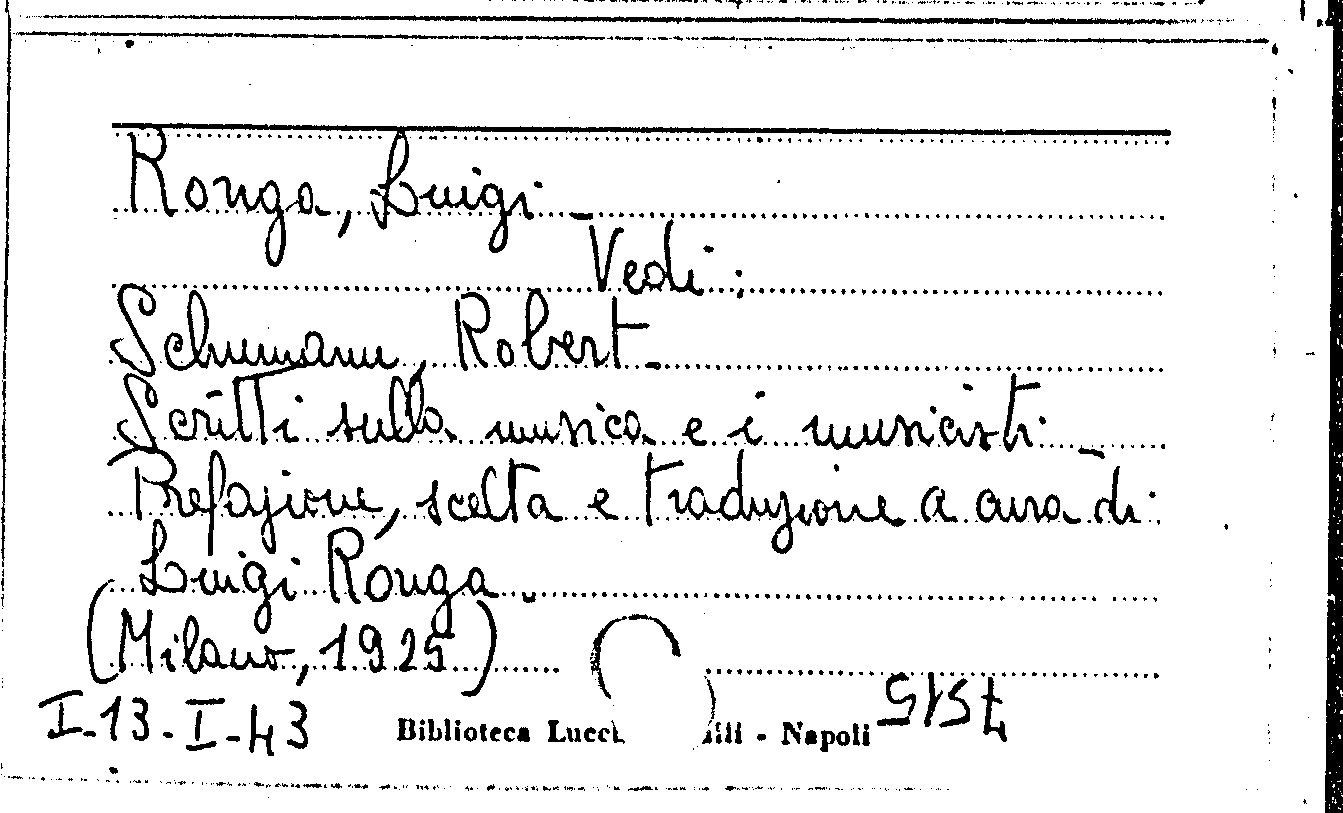 Ronga, Luigi -
Vedi:
Schumann, Robert -
Scritti sulla musica e i musicisti -
Prefazione, scelta e traduzione a cura di
Luigi Ronga.
(Milano, 1925)
I-13-I-43 Biblioteca - Napoli